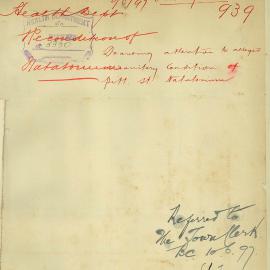 939
Health Dept
HEALTH DEPARTMENT
Re condition of
Drawing attention to alleged
Natatorium insanitary condition of
Pitt St Natatorium
Referred to
The Town Clerk
10.6.97